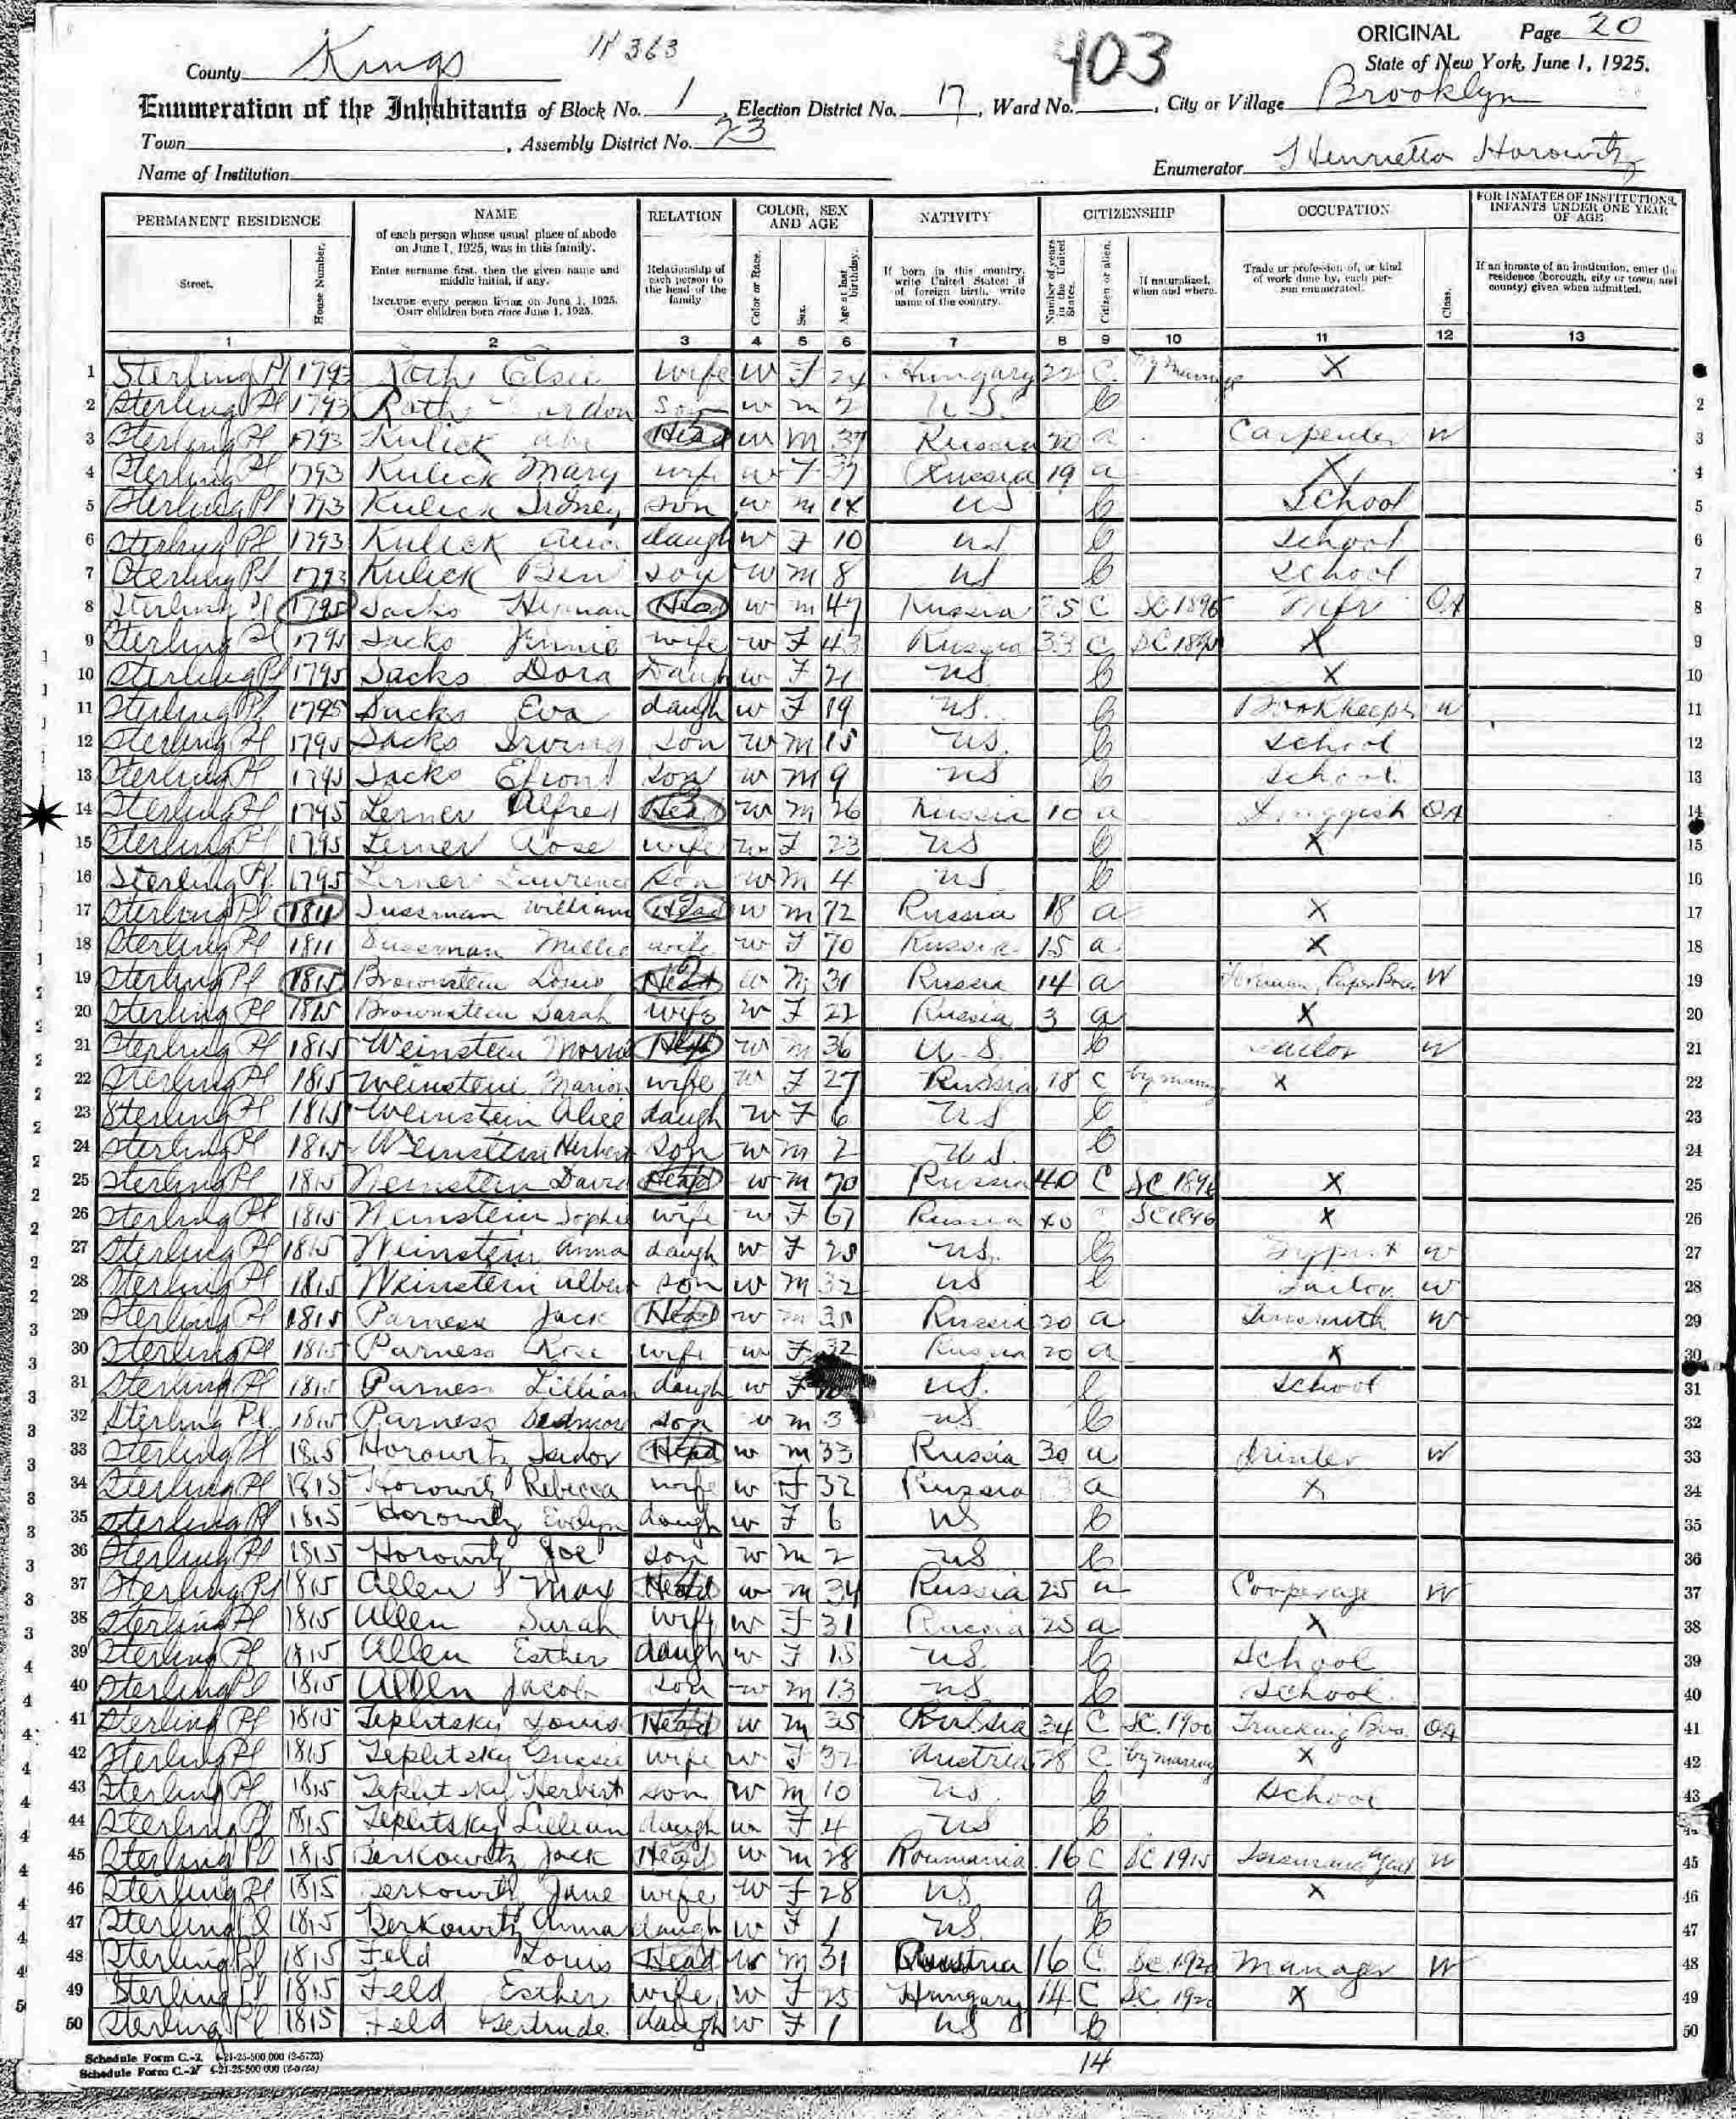 ORIGINAL Page 20
County Kings 11363 403 State of New York, June 1, 1925.
Enumeration of the Inhabitants of Block No. 1, Election District No. 17, Ward No. , City or Village Brooklyn
Town , Assembly District No. 23
Name of Institution Enumerator Henrietta Horowitz
PERMANENT RESIDENCE NAME RELATION COLOR, SEX AND AGE NATIVITY CITIZENSHIP OCCUPATION FOR INMATES OF INSTITUTIONS, INFANTS UNDER ONE YEAR OF AGE
Street. House Number. of each person whose usual place of abode on June 1, 1925, was in this family. Enter surname first, then the given name and middle initial, if any. INCLUDE every person living on June 1, 1925. OMIT children born since June 1, 1925. Relationship of each person to the head of the family Color or Race. Sex. Age at last birthday. If born in this country, write United States; if of foreign birth, write name of the country. Number of years in the United States. Citizen or alien. If naturalized, when and where. Trade or profession of, or kind of work done by, each person enumerated. Class. If an inmate of an institution, enter the residence (borough, city or town, and county) given when admitted.
1 2 3 4 5 6 7 8 9 10 11 12 13
1 Sterling Pl 1793 Roth Elsie wife w F 24 Hungary 22 C X
2 Sterling Pl 1793 Roth son w m 2 U.S. C 2
3 Sterling Pl 1793 Kulick Abe Head w M 37 Russia 20 a Carpenter W 3
4 Sterling Pl 1793 Kulick Mary wife w F 37 Russia 19 a X 4
5 Sterling Pl 1793 Kulick Sidney son w m 14 US C School 5
6 Sterling Pl 1793 Kulick daugh w F 10 US C School 6
7 Sterling Pl 1793 Kulick Ben son w m 8 US C School 7
8 Sterling Pl 1795 Sacks Hyman Head w m 47 Russia 35 C SC 1896 Mfr OA 8
9 Sterling Pl 1795 Sacks Jennie wife w F 43 Russia 33 C SC X 9
10 Sterling Pl 1795 Sacks Dora Daugh w F 21 US C X 10
11 Sterling Pl 1795 Sacks Eva daugh w F 19 US. C Bookkeeper w 11
12 Sterling Pl 1795 Sacks Irving son w m 15 US. C School 12
13 Sterling Pl 1795 Sacks son w m 9 US C School 13
14 Sterling Pl 1795 Lerner Alfred Head w m 26 Russia 10 a Druggist OA 14
15 Sterling Pl 1795 Lerner Rose wife w F 23 US C X 15
16 Sterling Pl. 1795 Lerner Lawrence son w m 4 US C 16
17 Sterling Pl 1811 Sussman William Head w m 72 Russia 18 a X 17
18 Sterling Pl 1811 Sussman Millie wife w F 70 Russia 15 a X 18
19 Sterling Pl 1815 Brownstein Louis Head w m 31 Russia 14 a Foreman, Paper Box W 19
20 Sterling Pl 1815 Brownstein Sarah wife w F 22 Russia 3 a X 20
21 Sterling Pl 1815 Weinstein Morris Head w m 36 U.S. C Tailor W 21
22 Sterling Pl 1815 Weinstein Marion wife w F 27 Russia 18 C by marriag X 22
23 Sterling Pl 1815 Weinstein Alice daugh w F 6 US C 23
24 Sterling Pl 1815 Weinstein Herbert son w m 2 U.S. C 24
25 Sterling Pl 1815 Weinstein David Head w m 70 Russia 40 C SC 1896 X 25
26 Sterling Pl 1815 Weinstein Sophie wife w F 67 Russia 40 SC 1896 X 26
27 Sterling Pl 1815 Weinstein Anna daugh w F 28 US. C Typist w 27
28 Sterling Pl 1815 Weinstein Albert son w m 32 US C Tailor w 28
29 Sterling Pl 1815 Parness Jack Head w m 35 Russia 20 a Tinsmith W 29
30 Sterling Pl 1815 Parness Rose wife w F 32 Russia 20 a X 30
31 Sterling Pl 1815 Parness Lillian daugh w F US. C School 31
32 Sterling Pl. 1815 Parness son w m 3 US C 32
33 Sterling Pl 1815 Horowitz Isidor Head w m 33 Russia 30 a Printer W 33
34 Sterling Pl 1815 Horowitz Rebecca wife w F 32 Russia a X 34
35 Sterling Pl 1815 Horowitz Evelyn daugh w F 6 US C 35
36 Sterling Pl 1815 Horowitz Joe son w m 2 US C 36
37 Sterling Pl 1815 Allen Max Head w m 34 Russia 25 a Cooperage W 37
38 Sterling Pl 1815 Allen Sarah wife w F 31 Russia 25 a X 38
39 Sterling Pl 1815 Allen Esther daugh w F 15 US C School 39
40 Sterling Pl 1815 Allen Jacob son w m 13 US C School 40
41 Sterling Pl 1815 Teplitsky Louis Head w m 35 Russia 34 C SC. 1900 Trucking Bus. OA 41
42 Sterling Pl 1815 Teplitsky Gussie wife w F 32 Austria 28 C by marriag X 42
43 Sterling Pl 1815 Teplitsky Herbert son w m 10 US. C School 43
44 Sterling Pl 1815 Teplitsky Lillian daugh w F 4 US C
45 Sterling Pl 1815 Berkowitz Jack Head w m 28 Roumania 16 C SC 1915 Insurance Agent W 45
46 Sterling Pl 1815 Berkowitz Jane wife w F 28 US a X 46
47 Sterling Pl 1815 Berkowitz Anna daugh w F 1 US. C 47
48 Sterling Pl 1815 Feld Louis Head w m 31 Austria 16 C SC. 1920 Manager W 48
49 Sterling Pl 1815 Feld Esther wife w F 25 Hungary 14 C SC. 1920 X 49
50 Sterling Pl 1815 Feld Gertrude daugh w F 1 US C 50
Schedule Form C.-2. 4-21-25-500,000 (2-5723)
Schedule Form C.-2. 4-21-25-500,000 (2-5723)
14